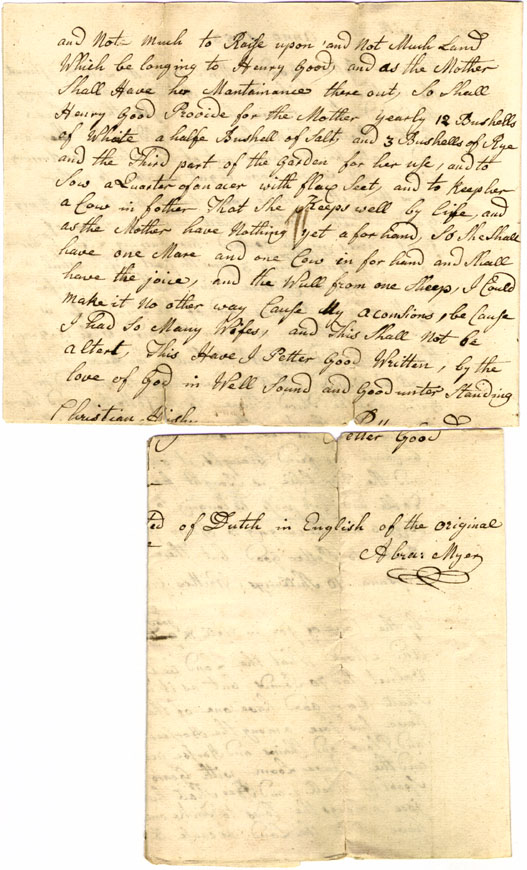 and Not much to Raise upon and Not Much Land
Which be longing to Henry Good, and as the Mother
Shall Have her Mantainance there out, So Shall
Henry Good Provide for the Mother yearly 12 Bushells
of White a halfe Bushell of Salt, and 3 Bushells of Rye
and the Third part of the Garden for her use, and to
Sow a Quarter of an acer with flax Seet, and to Keep her
a Cow in fother That She Keeps well by life, and
as the Mother have Nothing yet a for hand, So She Shall
have one Mare and one Cow in for hand and Shall
have the joice, and the Wull from one Sheep, I Could
make it No other way Cause My aconsions, be Cause
I had So Many Wifes, and This Shall Not be
altert, This Have I Petter Good Written, by the
love of God in Well Sound and Good unter Standing
Christian
Petter Good
of Dutch in English of the original
Abra: Myer